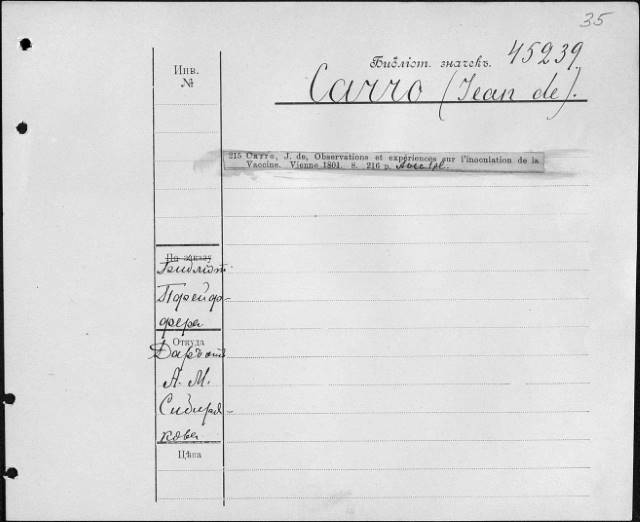 35
Библіот. значекъ. 45239
Инв.
№
Carro (Jean de).
215 Carro, J. de, Observations et expériences sur l'inoculation de la
Vaccine. Vienne 1801. 8. 216 p. Avec 1 pl.
По заказу
Библіот.
Пфейф-
фера
Откуда
Даръ отъ
А. М.
Сибиря-
кова
Цѣна